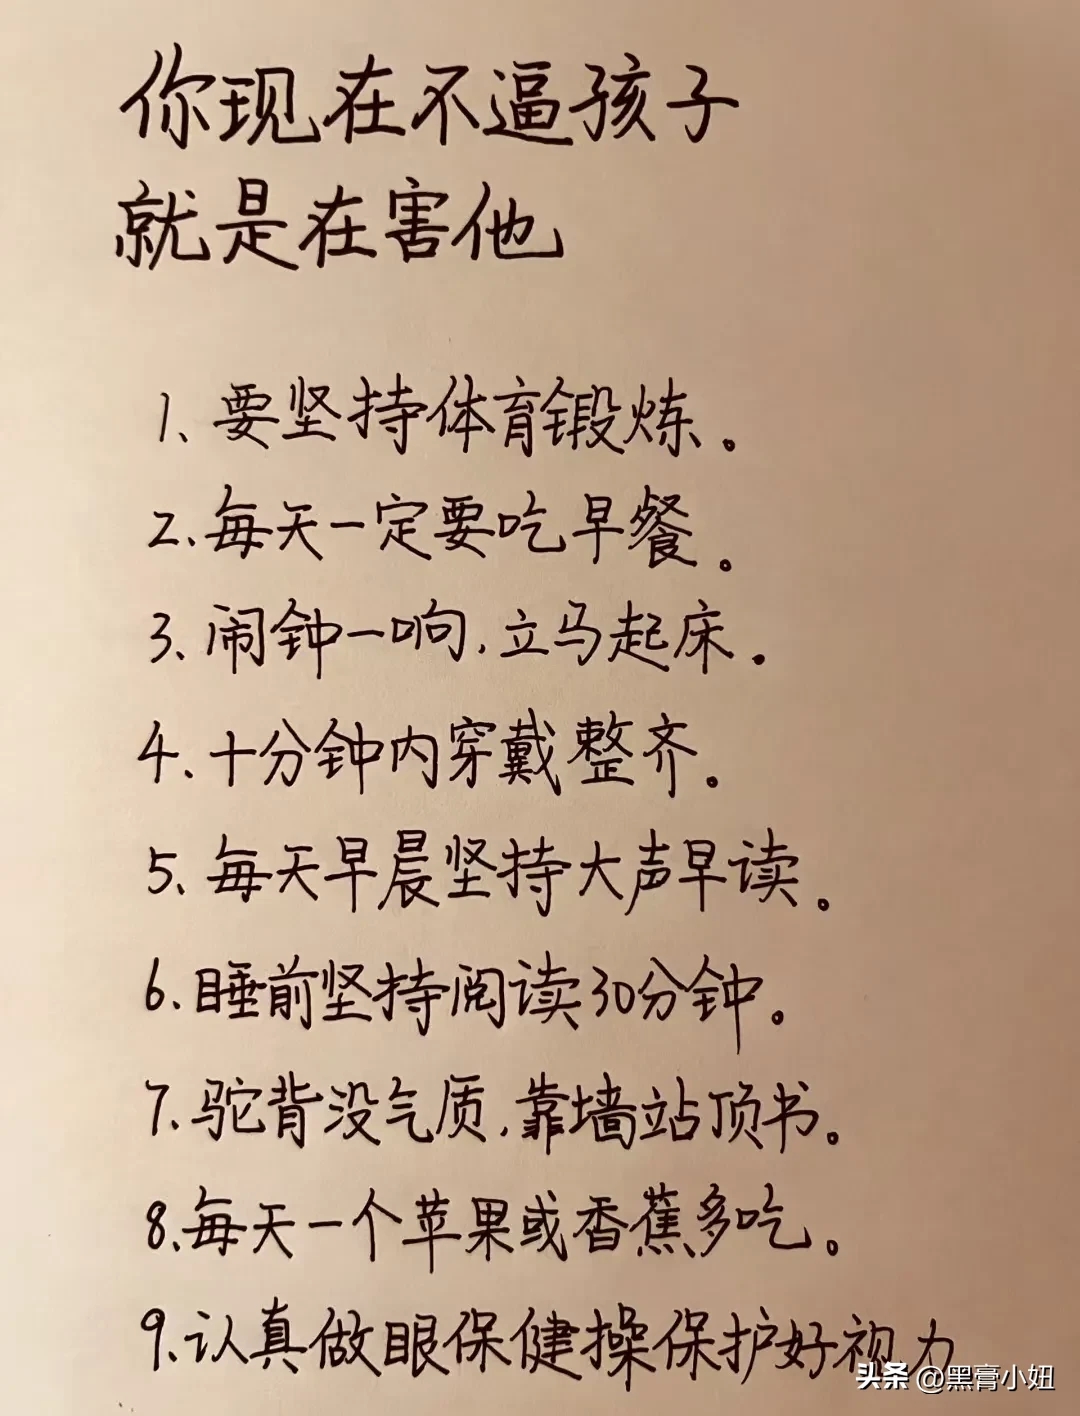 你现在不逼孩子
就是在害他
1、要坚持体育锻炼。
2、每天一定要吃早餐。
3、闹钟一响,立马起床。
4、十分钟内穿戴整齐。
5、每天早晨坚持大声早读。
6、睡前坚持阅读30分钟。
7、驼背没气质,靠墙站顶书。
8、每天一个苹果或香蕉多吃。
9、认真做眼保健操保护好视力
头条 @黑膏小妞